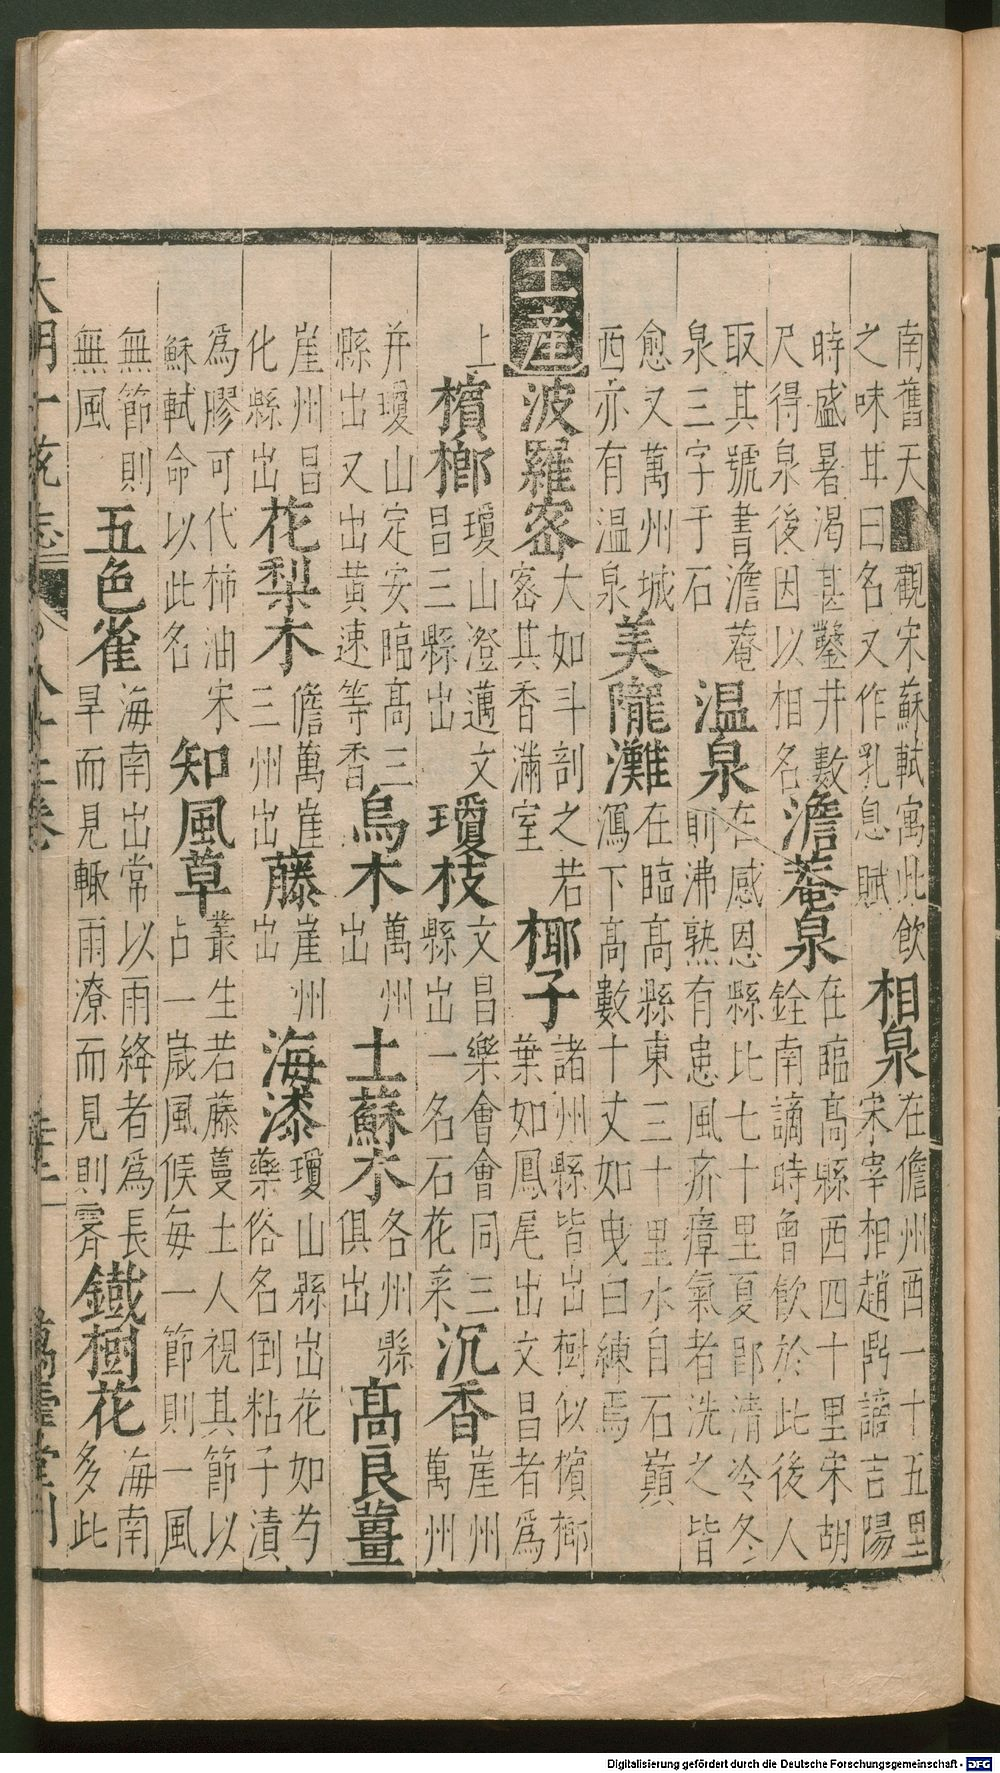 南舊天■觀宋蘇軾寓此飲
之味耳曰名又作乳息賦
相泉
在儋州酉一十五里
宋宰相趙鼎謫吉陽
時盛暑渴甚鑿井數
尺得泉後因以相名
澹菴泉
在臨高縣西四十里宋胡
銓南謫時曾飲於此後人
取其號書澹菴
泉三字于石
温泉
在感恩縣比七十里夏即清冷冬
則沸熟有患風疥瘴氣者洗之皆
愈又萬州城
西亦有温泉
美隴灘
在臨高縣東三十里水自石巔
瀉下高數十丈如曳曰練焉
土產
波羅宻
大如斗剖之若
宻其香滿室
椰子
諸州縣皆出樹似檳榔
葉如鳳尾出文昌者爲
上
檳榔
瓊山澄邁文
昌三縣出
瓊枝
文昌樂會會同三
縣出一名石花菜
沉香
崖州
萬州
并瓊山定安臨高三
縣出又出黄速等香
烏木
萬州
出
土蘇木
各州縣
俱出
高良薑
崖州昌
化縣出
花梨木
儋萬崖
三州出
藤
崖州
出
海漆
瓊山縣出花如芍
藥俗名倒粘子漬
爲膠可代柿油宋
蘇軾命以此名
知風草
叢生若藤蔓土人視其節以
占一歲風候每一節則一風
無節則
無風
五色雀
海南出常以雨絳者爲長
旱而見輒雨潦而見則霽
鐵樹花
海南
多此
大明一統志
八十二卷
萬壽堂刊
Digitalisierung gefördert durch die Deutsche Forschungsgemeinschaft - DFG